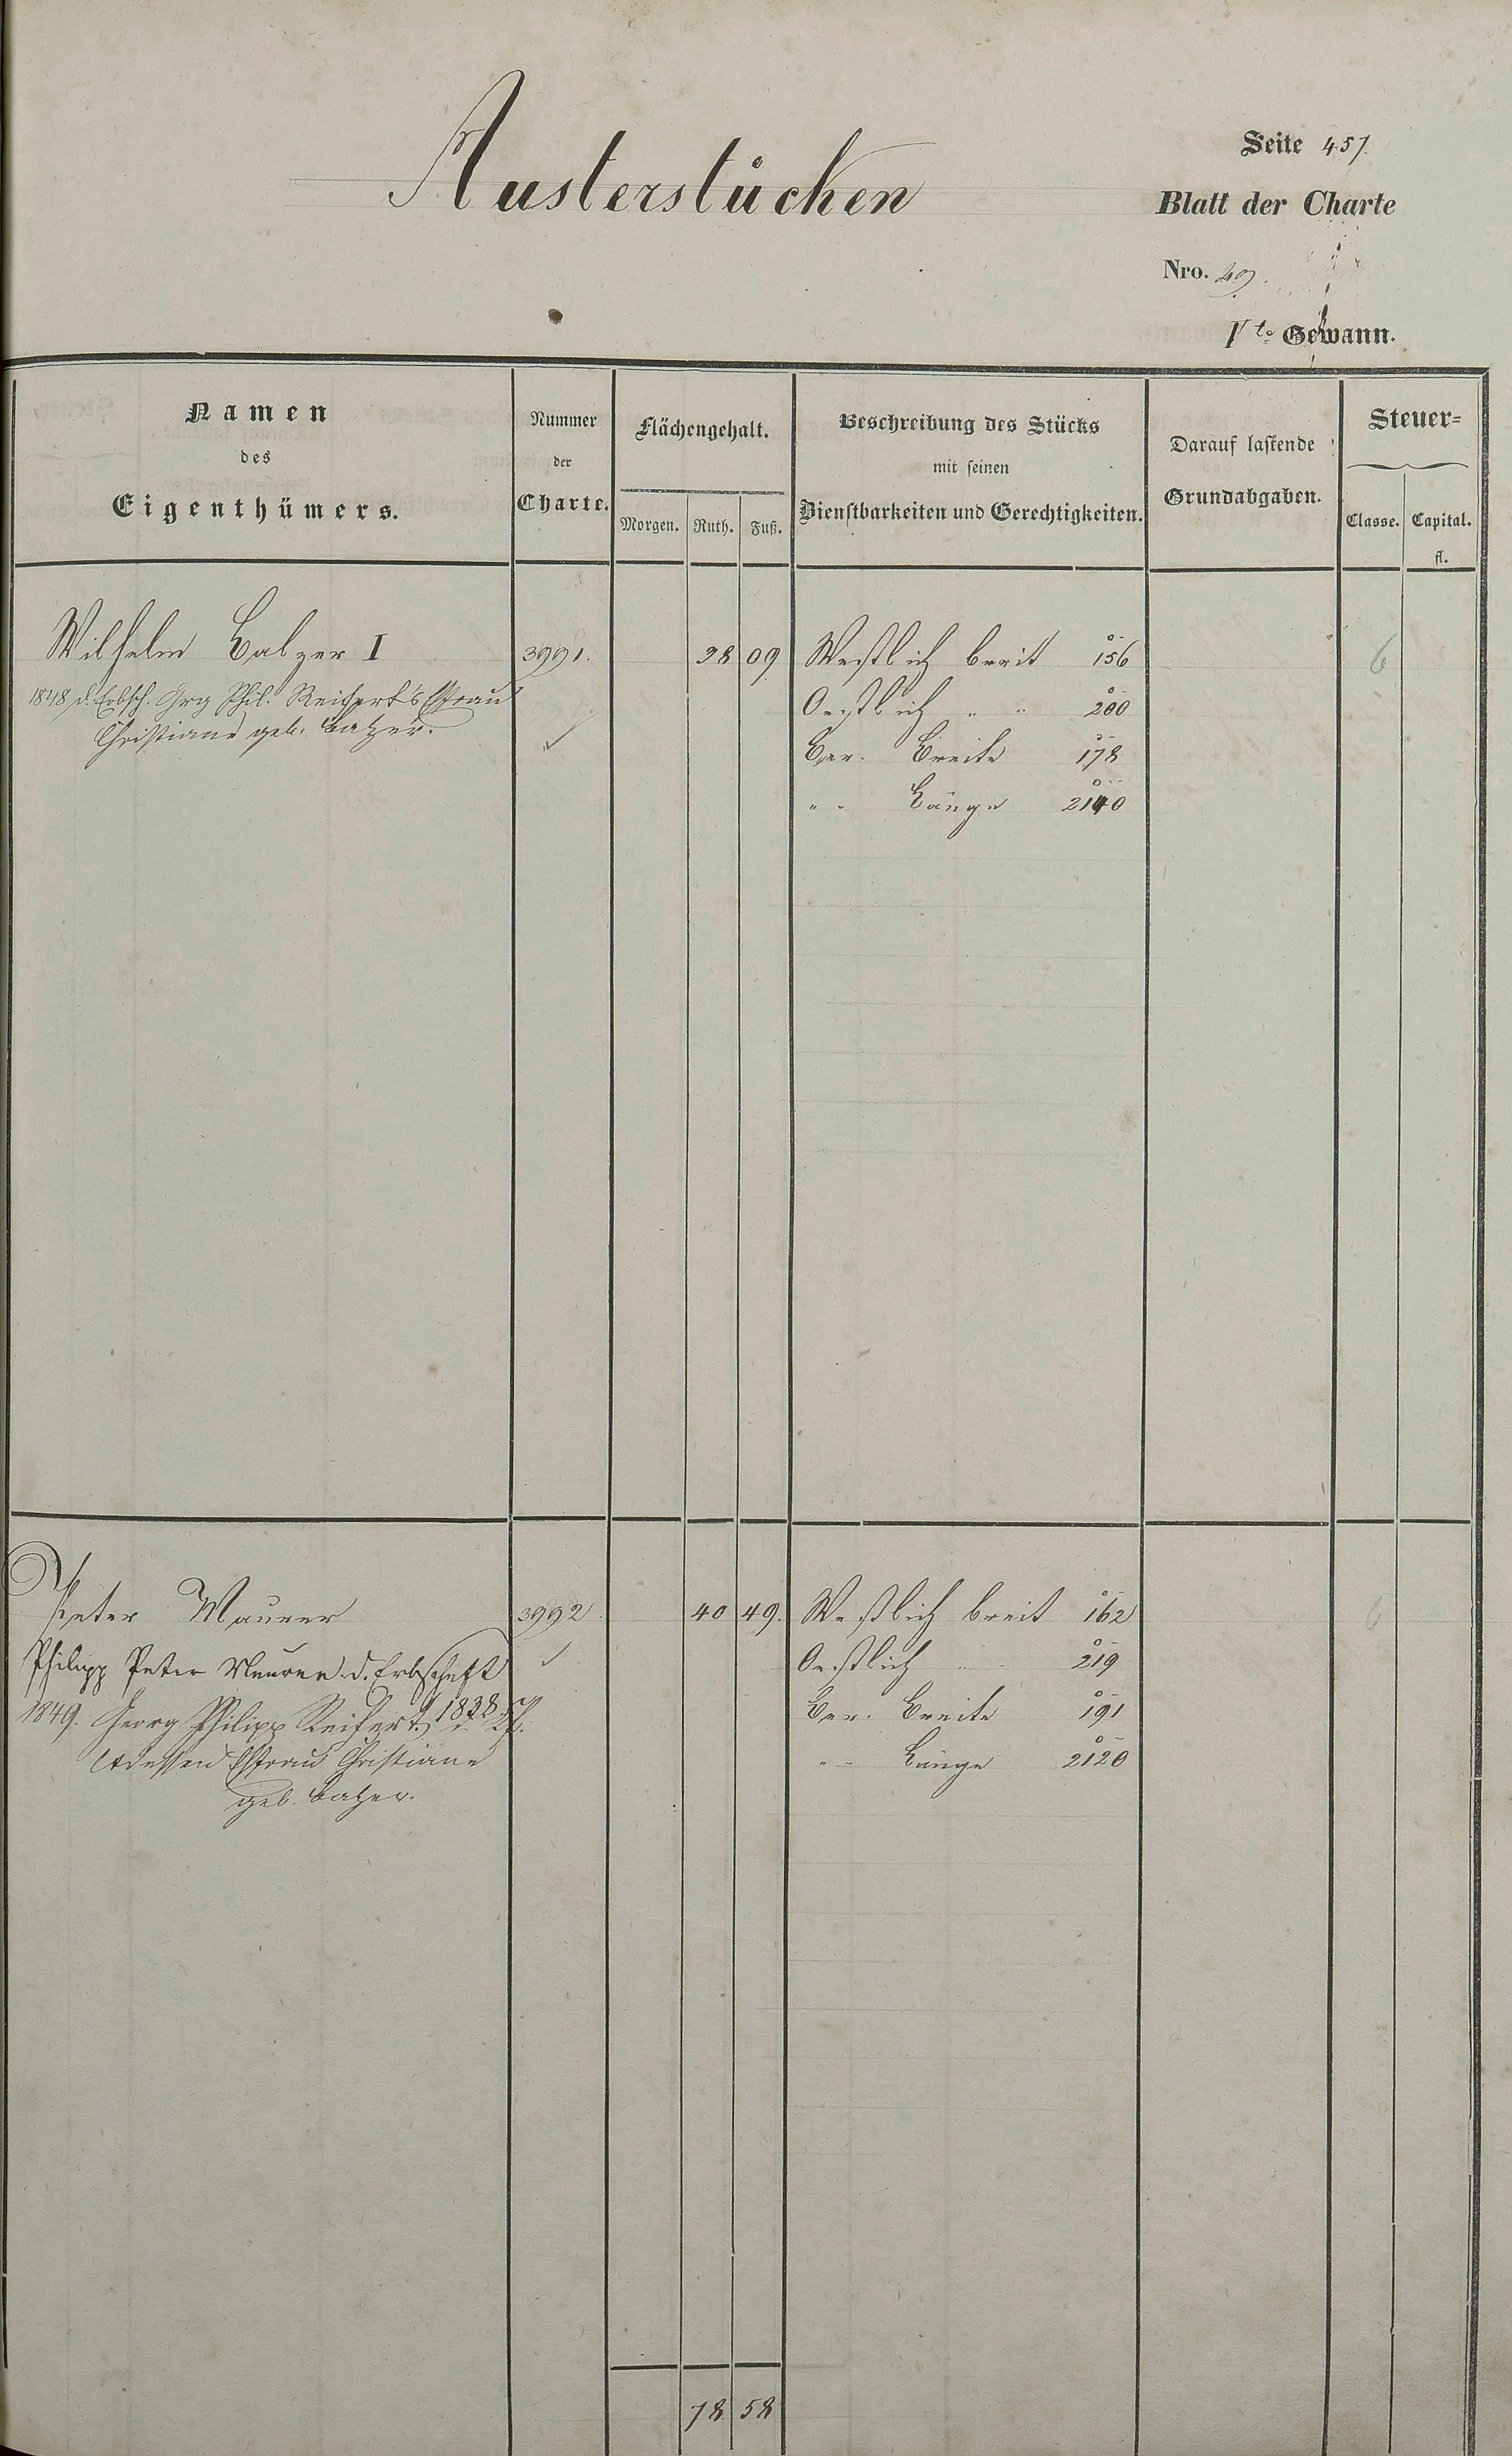 Austerstücken
Seite 457.
Blatt der Charte
Nro. 49.
1te Gewann.
Namen
des
Eigenthümers.
Nummer
der
Charte.
Flächengehalt.
Morgen. Ruth. Fuß.
Beschreibung des Stücks
mit seinen
Dienstbarkeiten und Gerechtigkeiten.
Darauf lastende
Grundabgaben.
Steuer=
Classe. Capital.
fl.
Wilhelm Balzer I 3991. 38 09 Westlich breit 156 6
1848 d. Erbsch. Grg Phil. Reifert's Ehfrau Oestlich " " 200
Christiane geb. Balzer. Ber. Breite 178
" " Länge 2140
Peter Maurer 3992 40 49. Westlich breit 162 6
Philipp Peter Maurer d. Erbschaft Oestlich " " 219
1838
1849. Georg Philipp Reifert Ber. Breite 191
dessen Ehfrau Christiane " " Länge 2120
geb. Balzer.
78 58